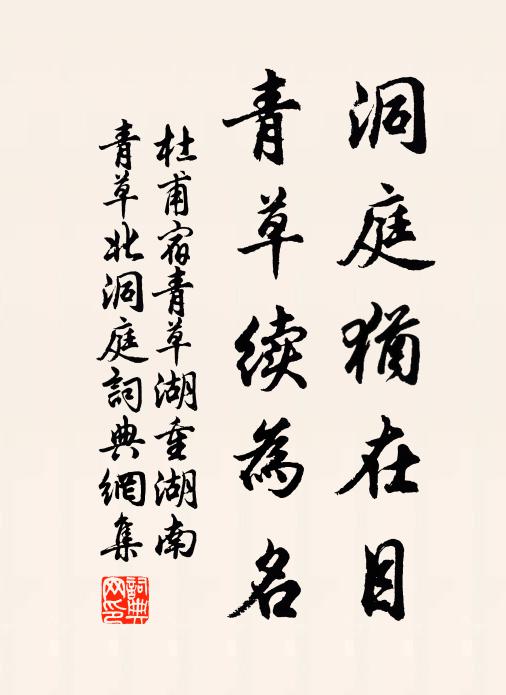 洞庭犹在目
青草续為名
杜甫宿青草湖重湖南
青草北洞庭詞典網集
詞典网印